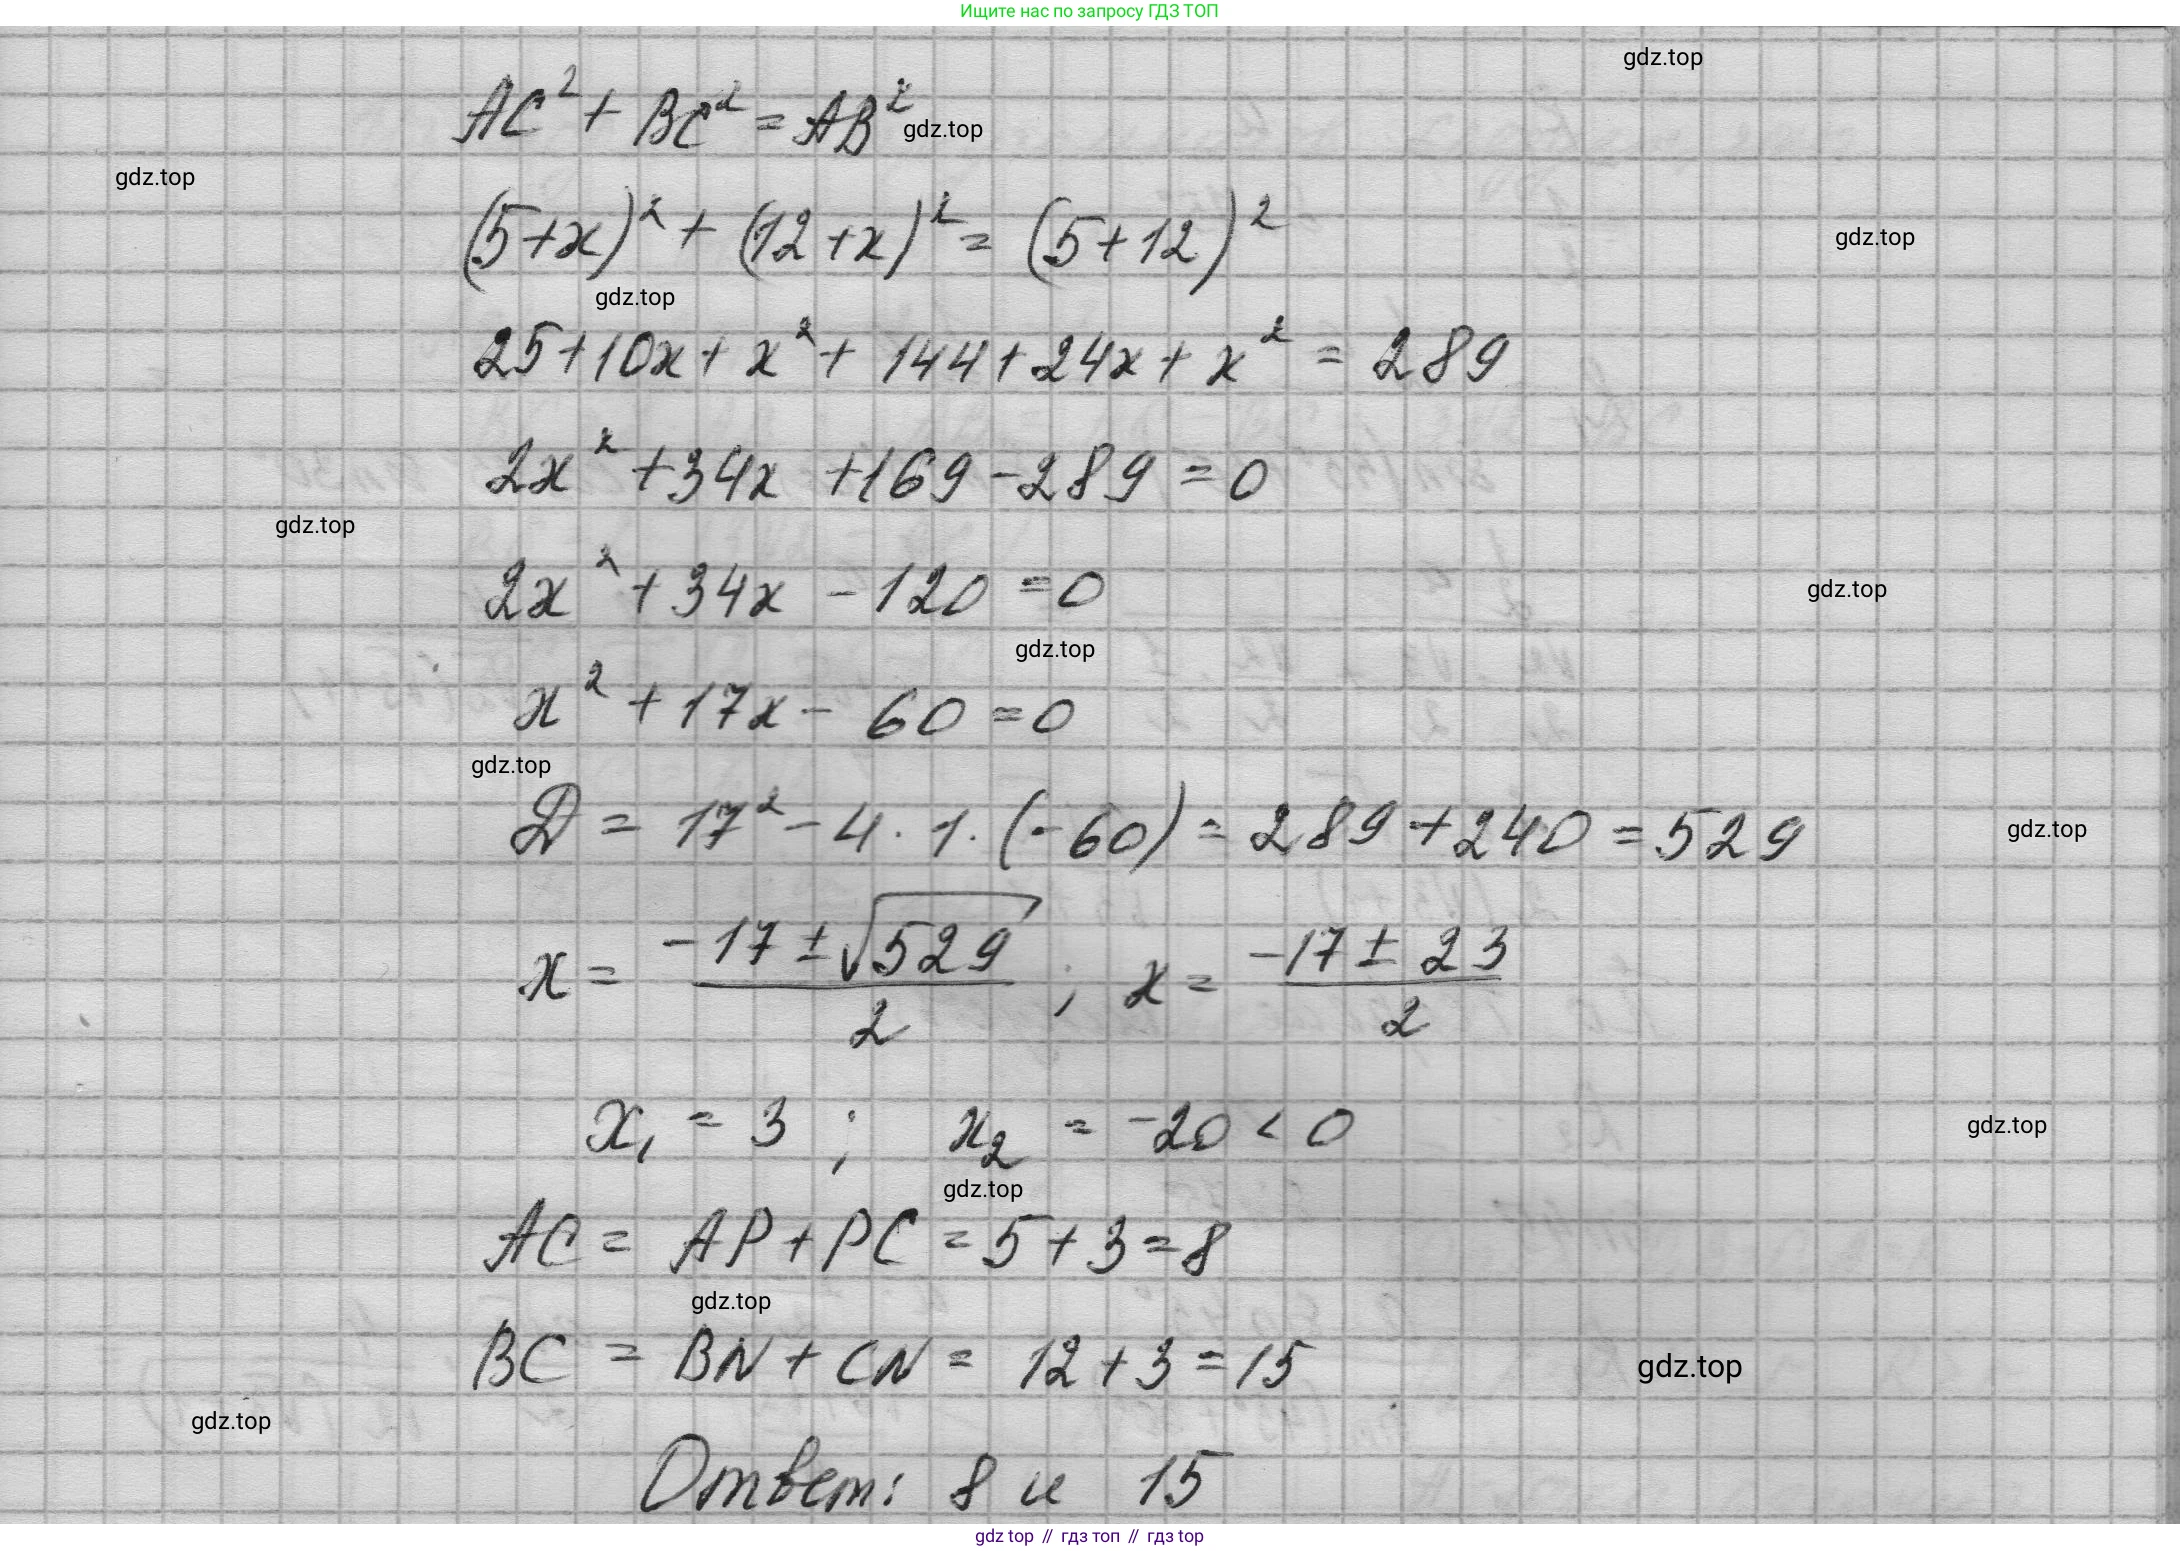 Ищите нас по запросу ГДЗ ТОП
gdz.top
AC² + BC² = AB²
gdz.top
gdz.top
(5+x)² + (12+x)² = (5+12)²
gdz.top
gdz.top
25+10x+x²+144+24x+x² = 289
2x²+34x+169-289=0
gdz.top
2x²+34x-120=0
gdz.top
gdz.top
x²+17x-60=0
gdz.top
D = 17²-4·1·(-60) = 289+240 = 529
gdz.top
x = (-17±√529)/2 ; x = (-17±23)/2
x₁ = 3 ; x₂ = -20 < 0
gdz.top
gdz.top
AC = AP+PC = 5+3=8
gdz.top
BC = BN+CN = 12+3=15
gdz.top
gdz.top
Ответ: 8 и 15
gdz top // гдз топ // гдз top